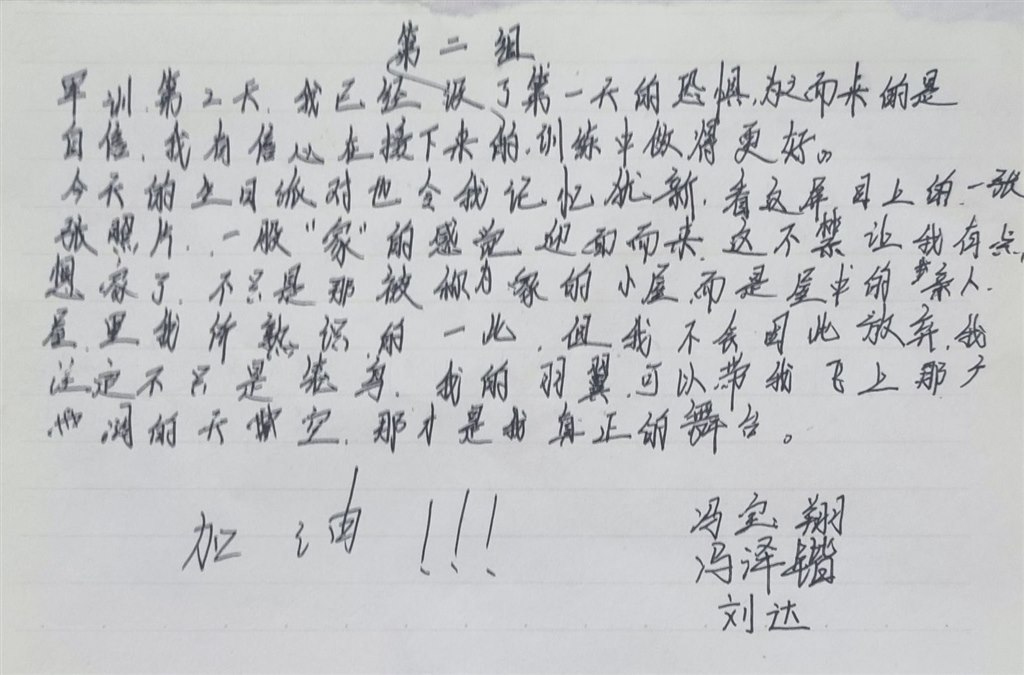 第二组
军训第2天,我已经没了第一天的恐惧,为之而来的是
自信,我有信心在接下来的训练中做得更好。
今天的生日派对也令我记忆犹新,看这屏目上的一张
张照片,一股“家”的感觉迎面而来,这不禁让我有点
想家了,不只是那被称为家的小屋,而是屋中的亲人,
屋里我所熟识的一些,但我不会因此放弃,我
注定不只是雏鸟,我的羽翼可以带我飞上那
阔的天空,那才是我真正的舞台。
加油!!!
冯宝翔
冯泽锴
刘达